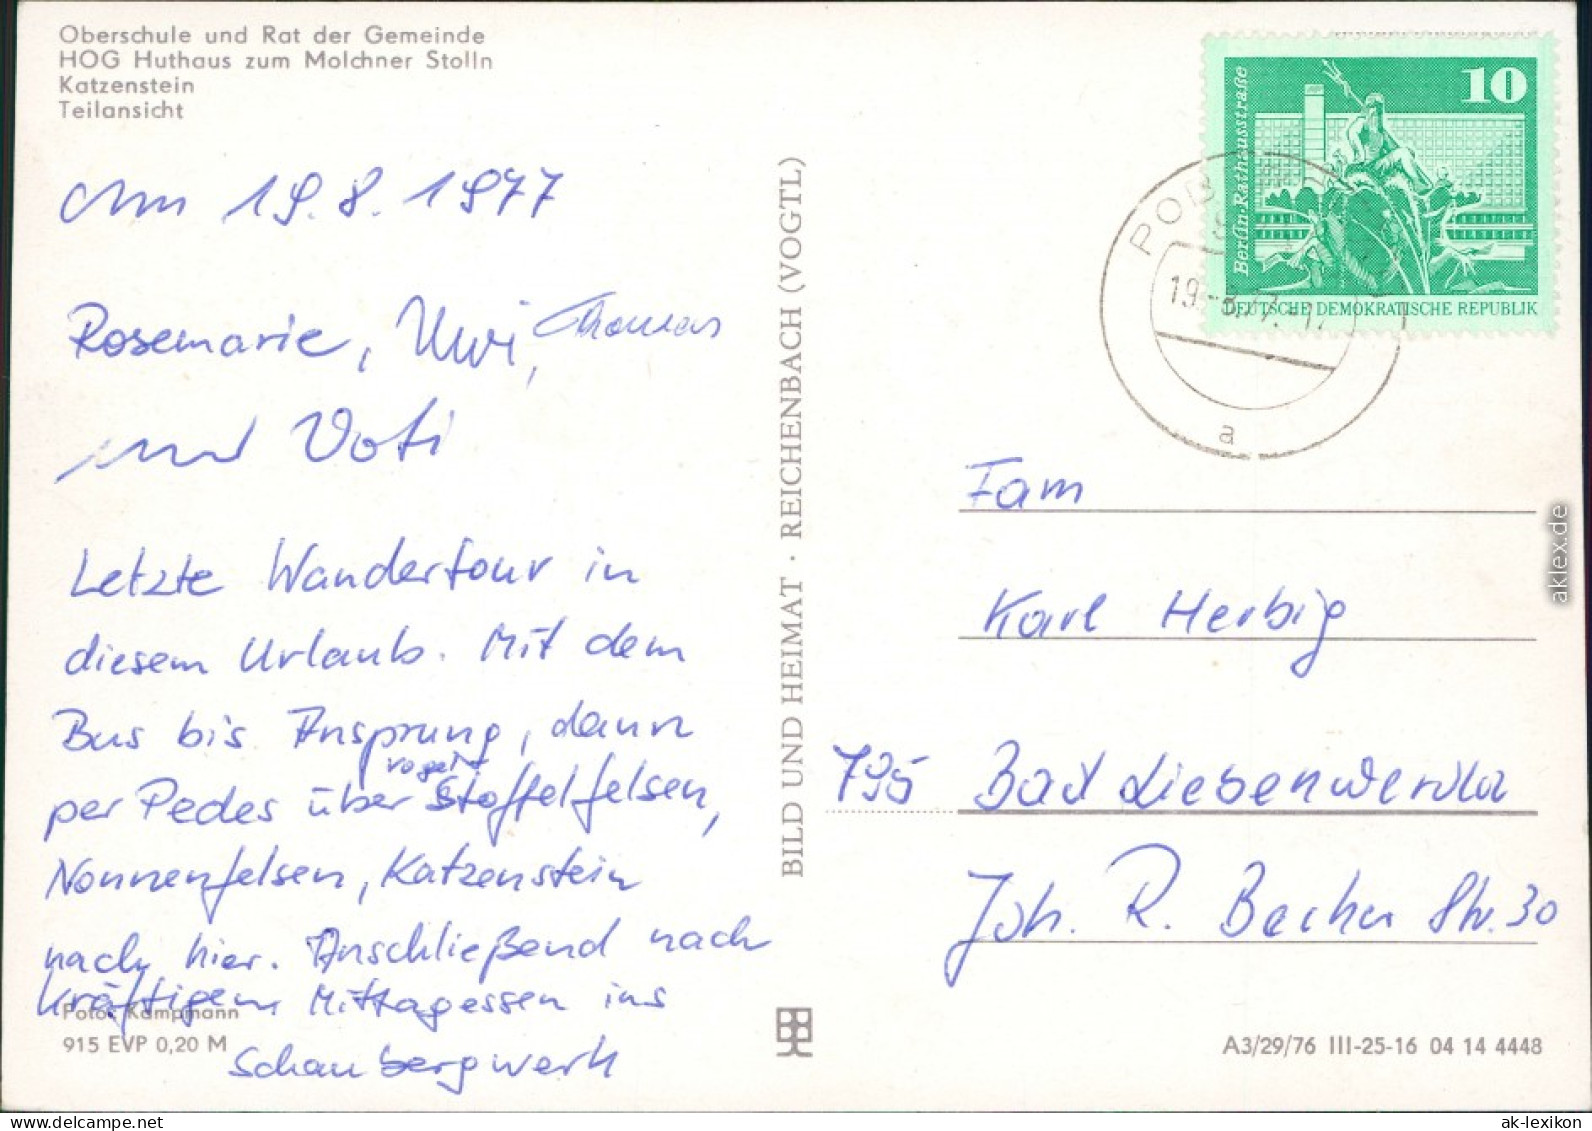 Oberschule und Rat der Gemeinde
HOG Huthaus zum Molchner Stolln
Katzenstein
Teilansicht
Am 19.8.1977
Rosemarie, Uwi, Thomas
und Voti
Letzte Wandertour in
diesem Urlaub. Mit dem
Bus bis Ansprung, dann
per Pedes über Stoffelfelsen,
Nonnenfelsen, Katzenstein
nach hier. Anschließend nach
kräftigem Mittagessen ins
Schaubergwerk
Foto: Kampmann
915 EVP 0,20 M
BILD UND HEIMAT · REICHENBACH (VOGTL)
10
Berlin·Rathausstraße
DEUTSCHE DEMOKRATISCHE REPUBLIK
19.-8.77.-17
a
Fam
Karl Herbig
795 Bad Liebenwerda
Joh. R. Becher Str. 30
A3/29/76 III-25-16 04 14 4448
aklex.de
ak-lexikon